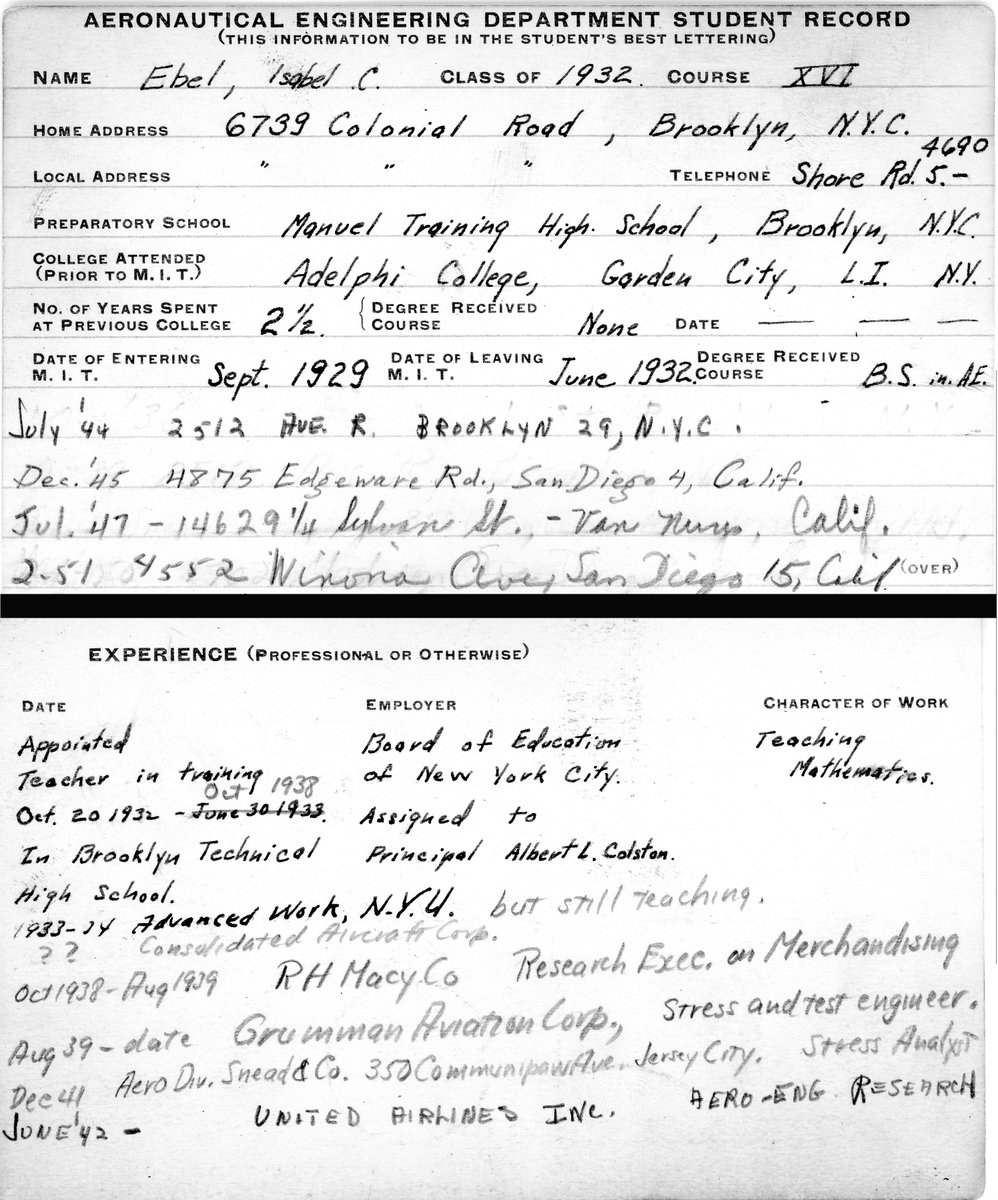 AERONAUTICAL ENGINEERING DEPARTMENT STUDENT RECORD
(THIS INFORMATION TO BE IN THE STUDENT'S BEST LETTERING)
NAME Ebel, Isabel C. CLASS OF 1932 COURSE XVI
HOME ADDRESS 6739 Colonial Road, Brooklyn, N.Y.C.
4690
LOCAL ADDRESS " " " TELEPHONE Shore Rd. 5.-
PREPARATORY SCHOOL Manuel Training High. School, Brooklyn, N.Y.C.
COLLEGE ATTENDED
(PRIOR TO M.I.T.) Adelphi College, Garden City, L.I. N.Y.
NO. OF YEARS SPENT
AT PREVIOUS COLLEGE 2 1/2. { DEGREE RECEIVED
COURSE None DATE — — —
DATE OF ENTERING
M.I.T. Sept. 1929 DATE OF LEAVING
M.I.T. June 1932. DEGREE RECEIVED
COURSE B.S. in. AE.
July '44 2512 AVE. R. BROOKLYN 29, N.Y.C.
Dec. '45 4875 Edgeware Rd., San Diego 4, Calif.
Jul. '47 - 14629 1/4 Sylvan St. - Van Nuys, Calif.
2-51 4552 Winona Ave, San Diego 15, Calif (OVER)
EXPERIENCE (PROFESSIONAL OR OTHERWISE)
DATE EMPLOYER CHARACTER OF WORK
Appointed Board of Education Teaching
Teacher in training of New York City. Mathematics.
Oct 1938
Oct. 20 1932 - June 30 1933. Assigned to
In Brooklyn Technical Principal Albert L. Colston.
High School.
1933-34 Advanced Work, N.Y.U. but still teaching.
?? Consolidated Aircraft Corp.
Oct 1938 - Aug 1939 RH Macy Co Research Exec. on Merchandising
Aug 39 - date Grumman Aviation Corp., Stress and test engineer.
Dec 41 Aero Div. Snead & Co. 350 Communipaw Ave. Jersey City. Stress Analyst
JUNE '42 - UNITED AIRLINES INC. AERO-ENG RESEARCH